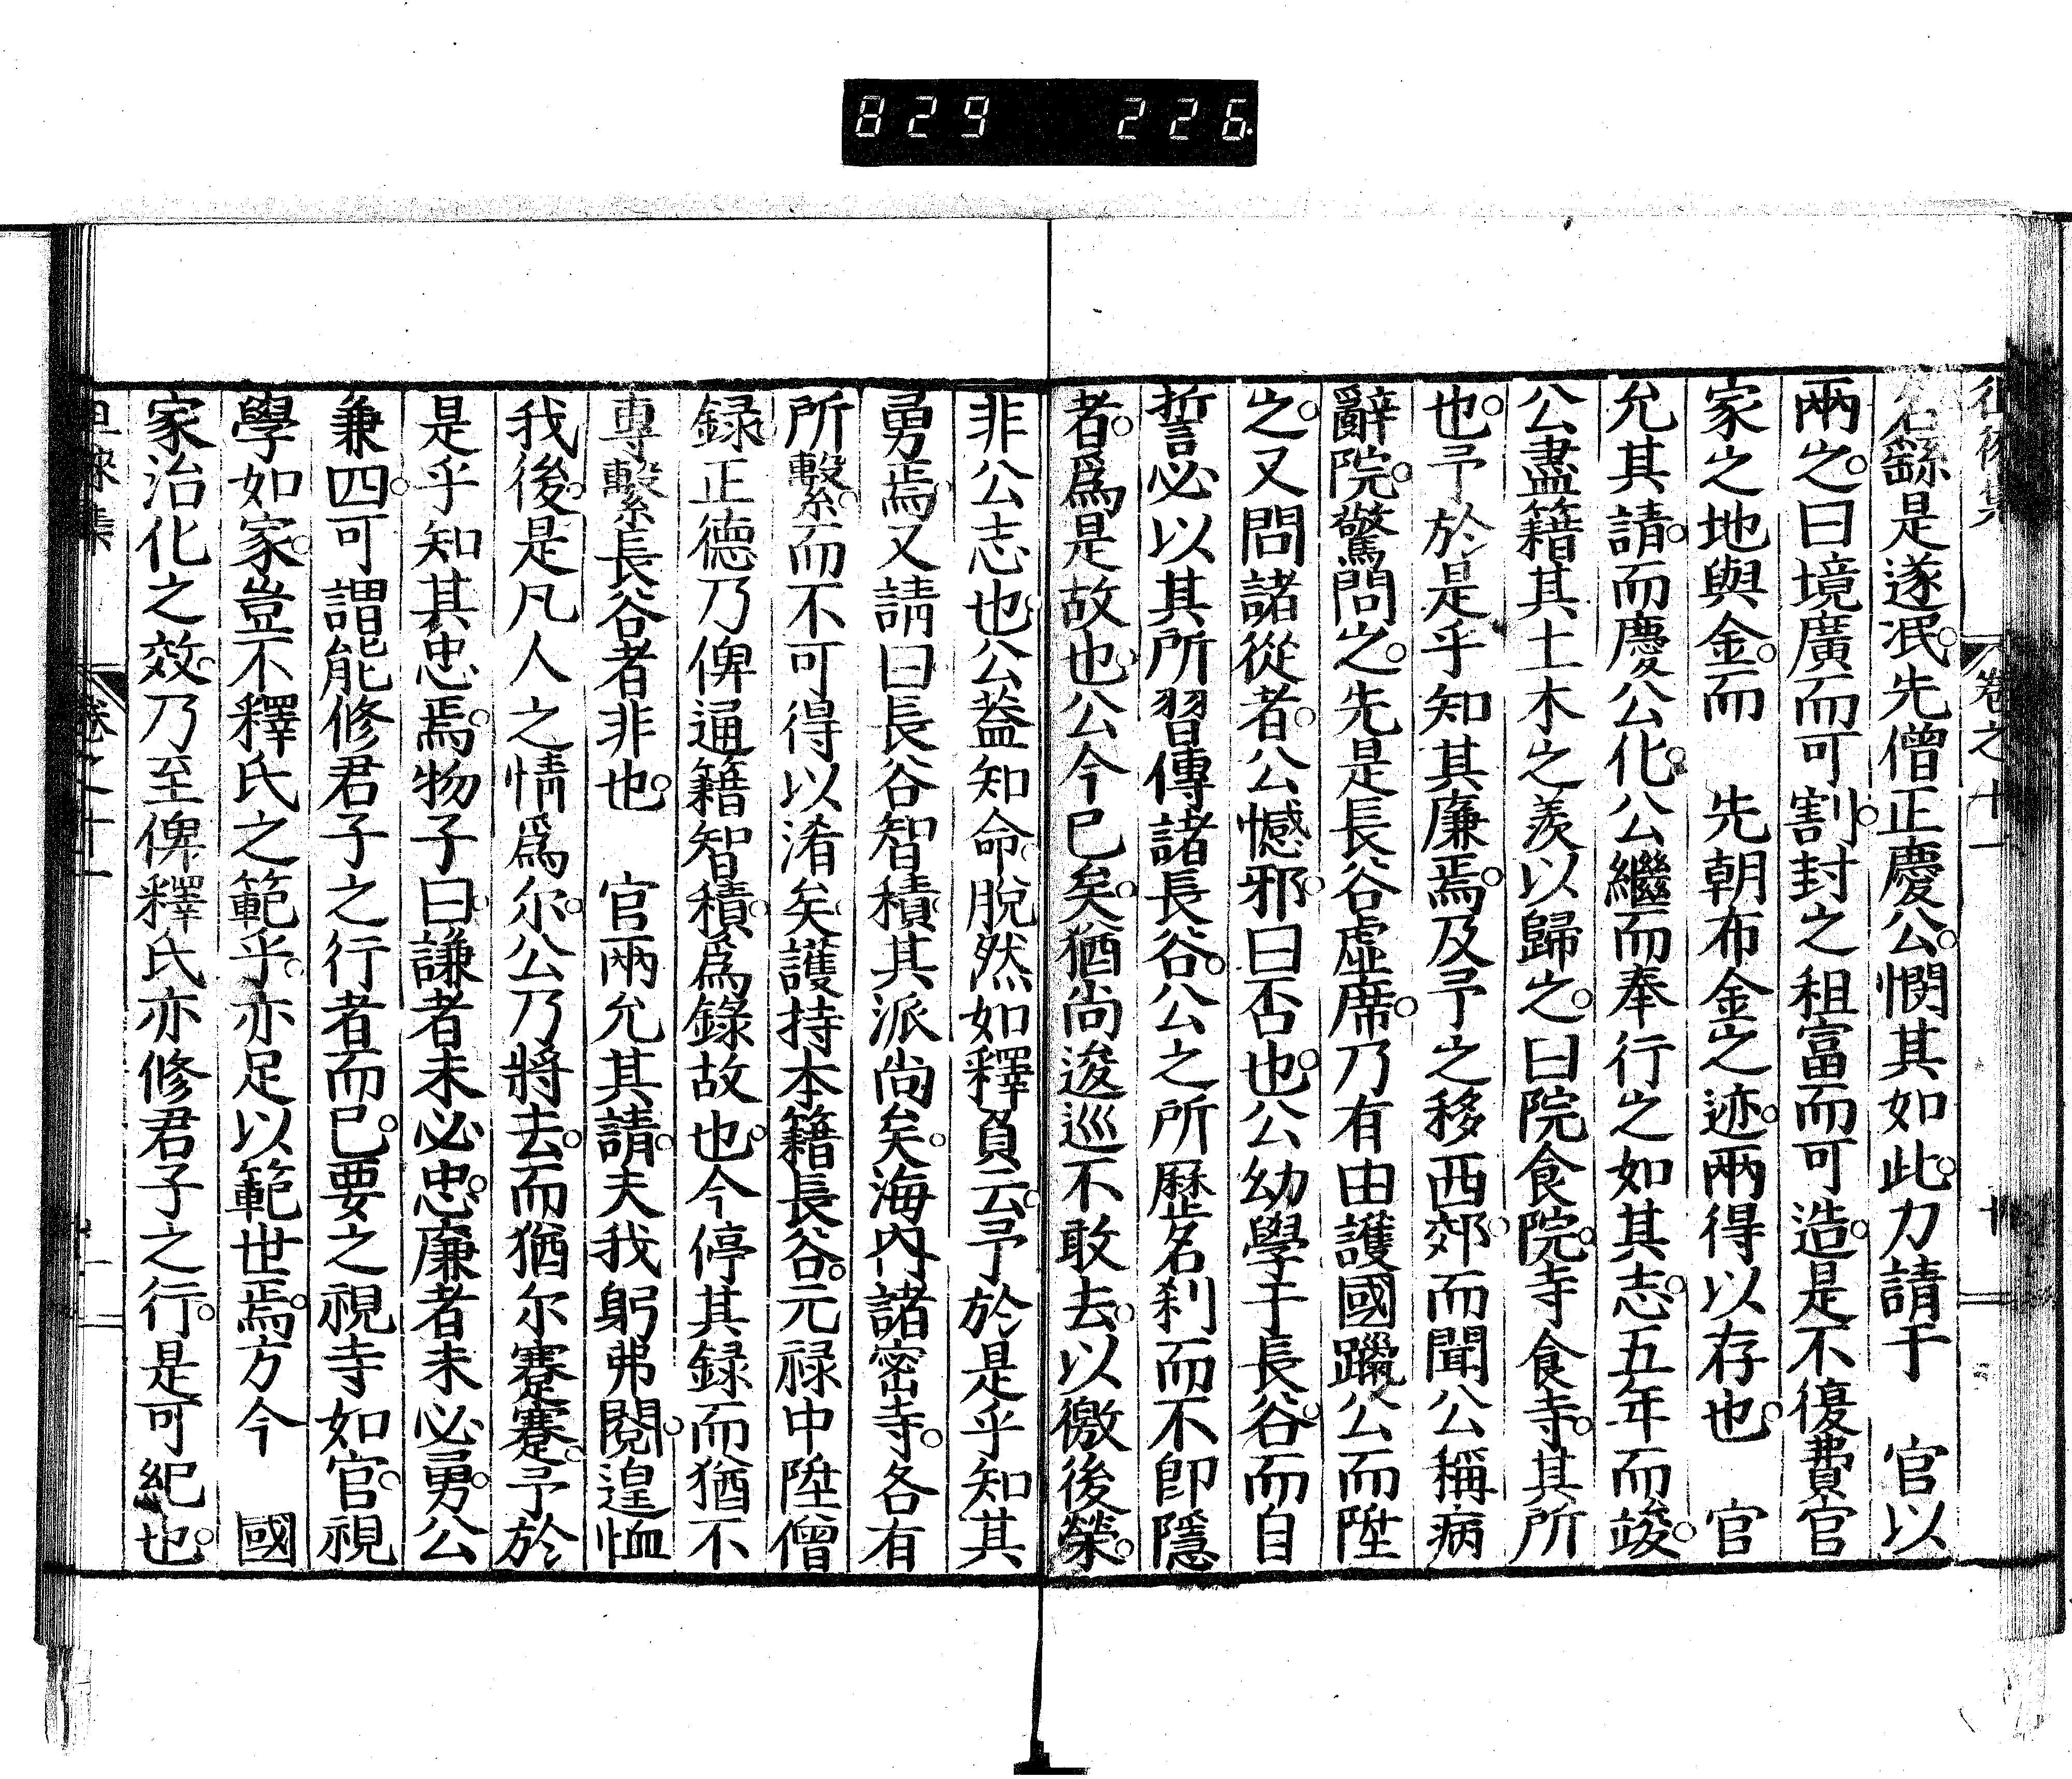 829 226
徂徠集 卷之十一 十
名繇是遂泯。先僧正慶公。憫其如此。力請于 官以
兩之。曰境廣而可割。封之租富而可造。是不復費官
家之地與金。而 先朝布金之迹。兩得以存也。 官
允其請。而慶公化。公繼而奉行之如其志。五年而竣。
公盡籍其土木之羨以歸之。曰院食院。寺食寺。其所
也。予於是乎知其廉焉。及予之移西郊。而聞公稱病
辭院。驚問之。先是長谷虛席。乃有由護國躐公而陞
之。又問諸從者。公憾邪。曰否也。公幼學于長谷。而自
誓必以其所習傳諸長谷。公之所歷名刹而不卽隱
者。爲是故也。公今已矣。猶尚逡巡不敢去。以徼後榮。
非公志也。公蓋知命。脫然如釋負云。予於是乎知其
勇焉。又請曰長谷智積。其派尚矣。海內諸密寺。各有
所繫。而不可得以淆矣。護持本籍長谷。元禄中陞僧
録正德乃俾通籍智積。爲錄故也。今停其録而猶不
專繫長谷者非也。 官兩允其請。夫我躬弗閱。遑恤
我後。是凡人之情爲尔。公乃將去。而猶尔蹇蹇。予於
是乎知其忠焉。物子曰。謙者未必忠。廉者未必勇。公
兼四。可謂能修君子之行者而已。要之視寺如官。視
學如家。豈不釋氏之範乎。亦足以範世焉。方今 國
家治化之效。乃至俾釋氏亦修君子之行。是可紀也。
徂徠集 卷之十一